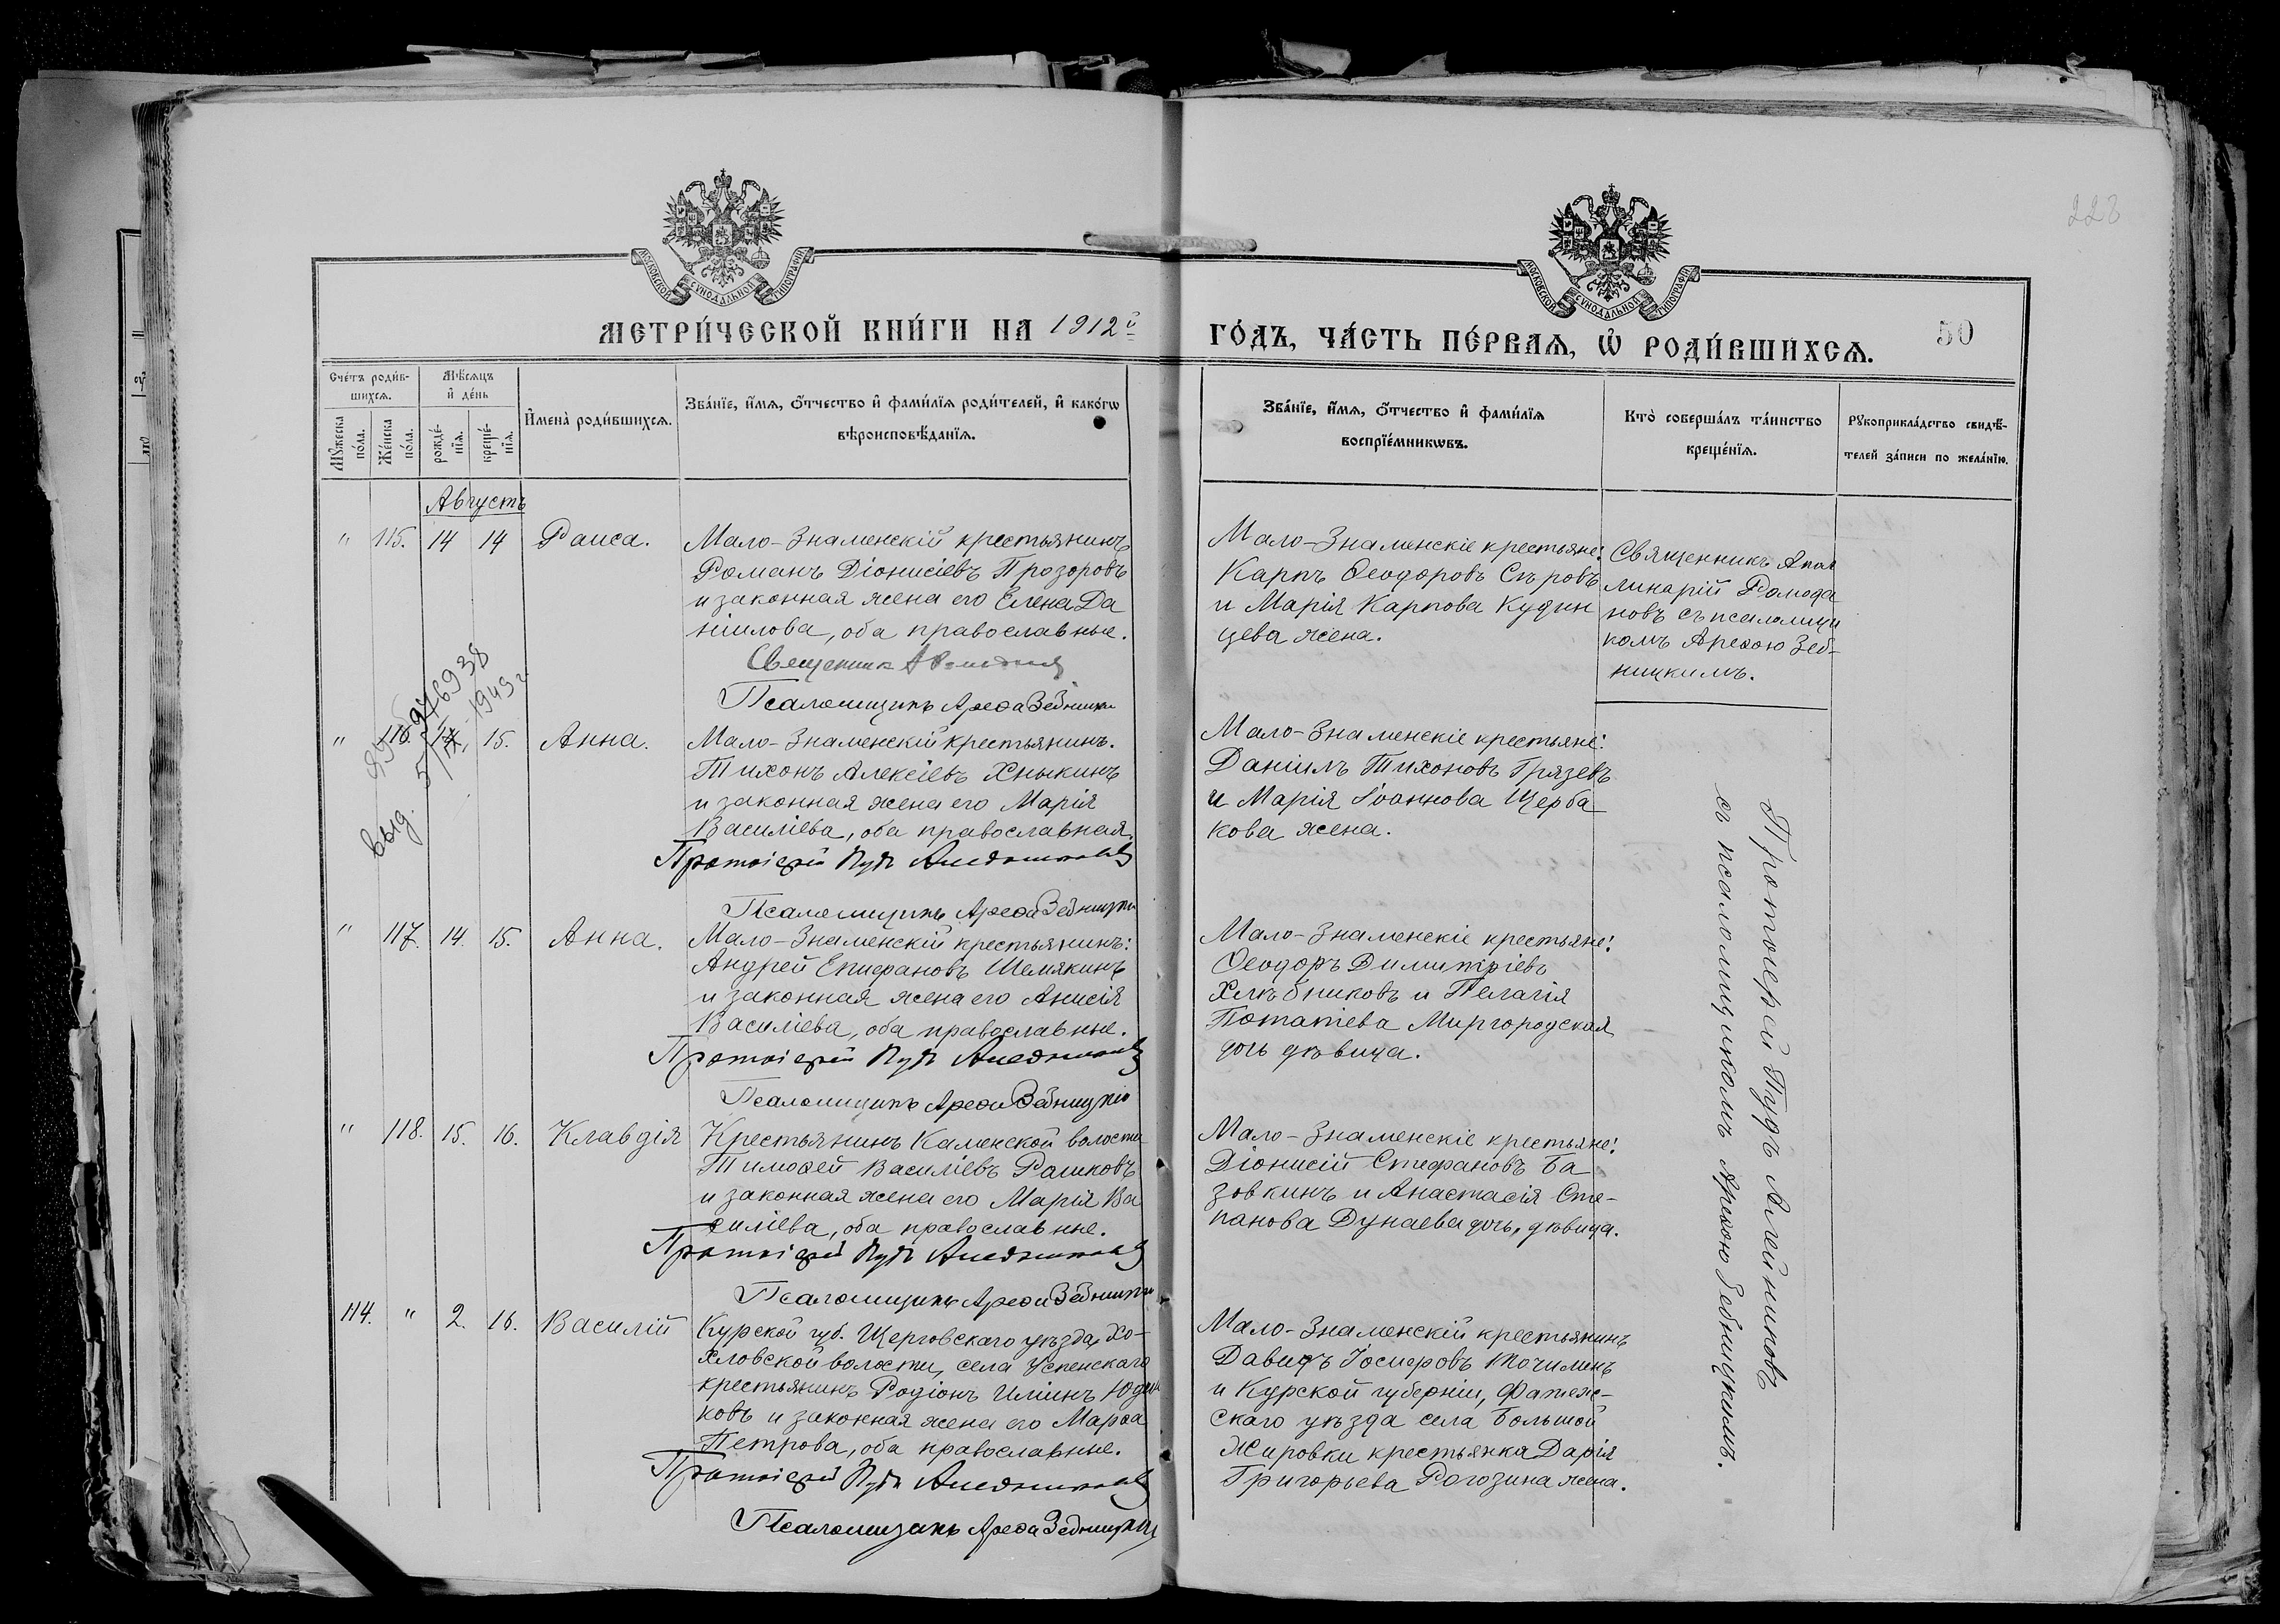 223
МОСКОВСКОЙ СѴНОДАЛЬНОЙ ТИПОГРАФІИ
МОСКОВСКОЙ СѴНОДАЛЬНОЙ ТИПОГРАФІИ
МЕТРИ́ЧЕСКОЙ КНИ́ГИ НА 1912й
ГО́ДЪ, ЧА́СТЬ ПЕ́РВАѦ, Ѡ҆ РОДИ́ВШИХСѦ.
50
Сче́тъ роди́в-
шихсѧ.
Мꙋ́жеска по́ла.
Же́нска по́ла.
Мѣ́сѧцъ
и҆ де́нь
рожде́-нїѧ.
креще́-нїѧ.
И҆мена̀ роди́вшихсѧ.
Зва́нїе, и҆́мѧ, ѻ҆́тчество и҆ фами́лїѧ роди́телей, и҆ како́гѡ
вѣроисповѣ́данїѧ.
Зва́нїе, и҆́мѧ, ѻ҆́тчество и҆ фами́лїѧ
воспрїе́мникѡвъ.
Кто̀ соверша́лъ та́инство
креще́нїѧ.
Рꙋкоприкла́дство свидѣ́-
телей за́писи по жела́нїю.
Августъ
" 115. 14 14 Раиса.
Мало-Знаменскій крестьянинъ
Романъ Діонисіевъ Прозоровъ
и законная жена его Елена Да
ніилова, оба православные.
Священникъ
Псаломщикъ Арефа Зебницкій
Мало-Знаменскіе крестьяне:
Карпъ Ѳеодоровъ Сѣровъ
и Марія Карпова Кудин
цева жена.
Священникъ Апол
линарій Ромода
новъ съ псаломщи
комъ Арефою Зеб-
ницкимъ.
976938
1949 г.
выд.
" 116. 14. 15. Анна.
Мало-Знаменскій крестьянинъ.
Тихонъ Алексіевъ Хныкинъ
и законная жена его Марія
Василіева, оба православная.
Протоіерей Пудъ Алейниковъ
Псаломщикъ Арефа Зебницкій
Мало-Знаменскіе крестьяне:
Даніилъ Тихоновъ Грязевъ
и Марія Іоаннова Щерба
кова жена.
" 117. 14. 15. Анна.
Мало-Знаменскій крестьянинъ:
Андрей Епифановъ Шемякинъ
и законная жена его Анисія
Василіева, оба православные.
Протоіерей Пудъ Алейниковъ
Псаломщикъ Арефа Зебницкій
Мало-Знаменскіе крестьяне:
Ѳеодоръ Димитріевъ
Хлѣбниковъ и Пелагія
Потапіева Миргородская
дочь дѣвица.
" 118. 15. 16. Клавдія
Крестьянинъ Каменской волости
Тимофей Василіевъ Рашковъ
и законная жена его Марія Ва
силіева, оба православные.
Протоіерей Пудъ Алейниковъ
Псаломщикъ Арефа Зебницкій
Мало-Знаменскіе крестьяне:
Діонисій Стефановъ Ба
зовкинъ и Анастасія Сте-
панова Дунаева дочь, дѣвица.
114. " 2. 16. Василій
Курской губ. Щегровскаго уѣзда, Хо-
хловской волости, села Успенскаго
крестьянинъ Родіонъ Иліинъ
ковъ и законная жена его Марфа
Петрова, оба православные.
Протоіерей Пудъ Алейниковъ
Псаломщикъ Арефа Зебницкій
Мало-Знаменскій крестьянинъ
Давидъ Іосифовъ Точилинъ
и Курской губерніи, Фатеж-
скаго уѣзда села Большой
Жировки крестьянка Дарія
Григорьева Рогозина жена.
Протоіерей Пудъ Алейниковъ
съ псаломщикомъ Арефою Зебницкимъ.